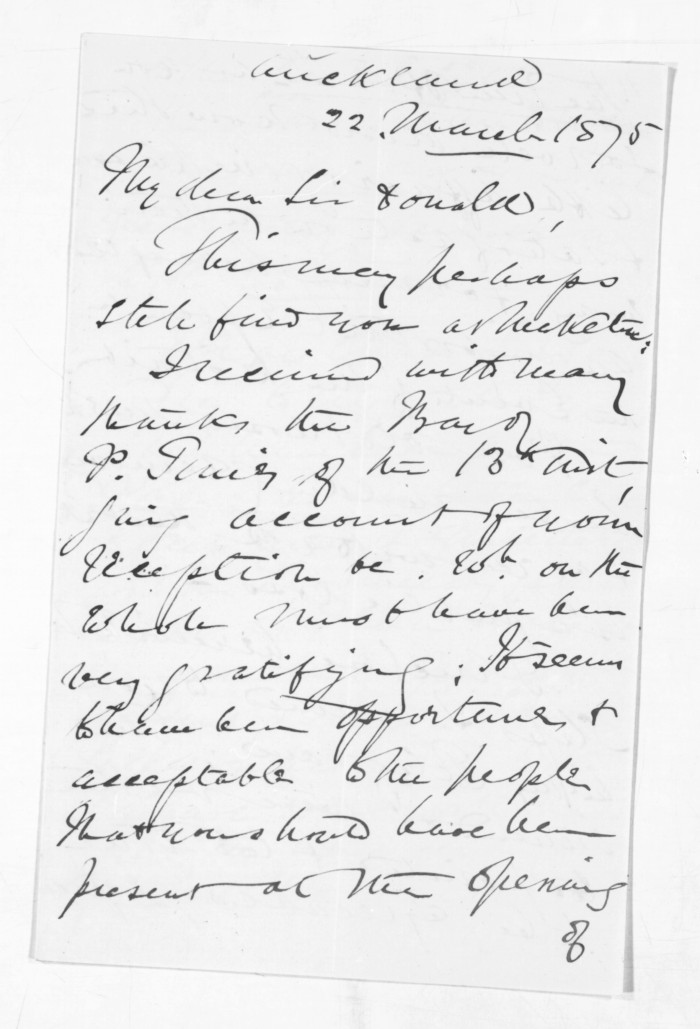 Auckland
22 March 1875
My dear Sir Donald,
This may perhaps
still find you at Maketu:
I received with many
thanks the Bay of
P. Times of the 13th inst,
giving account of your
reception &c. wh. on the
whole must have been
very gratifying; It seems
to have been opportune, &
acceptable to the people
that you should have been
present at the opening
of